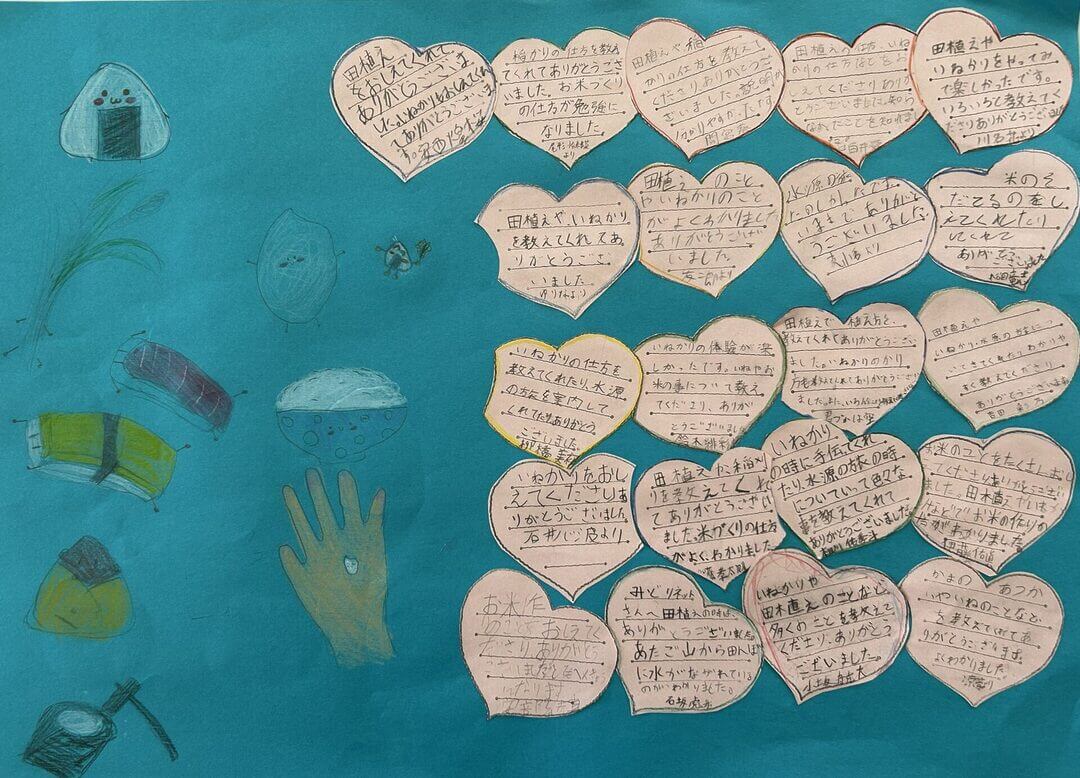 田植え
をおしえてくれて、
ありがとうございま
した。いねかりもおしえてくれ
てありがとうございま
す。
稲かりの仕方を教え
てくれてありがとうござ
いました。お木つくり
の仕方が勉強に
なりました
より
田植えや稲
かりの仕方を教えて
くださりありがとうご
ざいました。説明が
分かりやすか
田植えの仕方、いね
かりの仕方などをお
えてくださりありがと
うございました。知ら
なかったことを知れまし
田植えや
いねかりをやってみ
て楽しかったです。
いろいろと教えてく
ださりありがとうございました
より
田植えや、いねかり
を教えてくれてあ
りがとうござ
いました
ゆりねより
田植えのこと
やいねかりのこと
がよくわかりました
ありがとうござ
いました
より
水源の旅
たのしかったです。
いままでありがと
うございました。
より
米のそ
だてるのをし
えてくれたり
してくれて
ありがとうございました
いねかりの仕方を
教えてくれたり、水源
の方を案内して
くれてたりありがとう
ございました。
いねかりの体験が楽
しかったです。いねやお
米の事について教え
てくださり、ありが
とうございました
鈴木
田植えで植え方を、
教えてくれてありがとうござい
ました。いねかりのかり
方も教えてくれてありがとうござい
ました。また、
田植えや
いねかり・水源の
ってきてくれてわかりや
すく教えてくださり
ありがとうございました
吉田 彩乃
いねかりをおし
えてくださりあ
りがとうございました
石井 より
田植えか、稲
りを教えてくれ
てありがとうござい
ました。米づくりの仕方
がよくわかりました
いねかり
の時に手伝てくれ
たり水源の旅の時
についていって色々な
事を教えてくれて
ありがとうございました。
お米のコツをたくさんおし
えてくださりありがとうござい
ました。田木直えだいねかり
などでお米の作りか
たがわかりました
お米作
りのことをおしえてく
ださり、ありがとう
ございました
みどりネット
さんへ 田植えの時は、
ありがとうございました。
あたご山から田んぼ
に水がながれている
のがわかりました。
石坂
いねかりや
田木直えのことなど、
多くのことを教えて
くださり、ありがとう
ございました。
かまの あつか
いやいねのことなど
を教えてくれてあ
りがとうございます。
よくわかりました
より